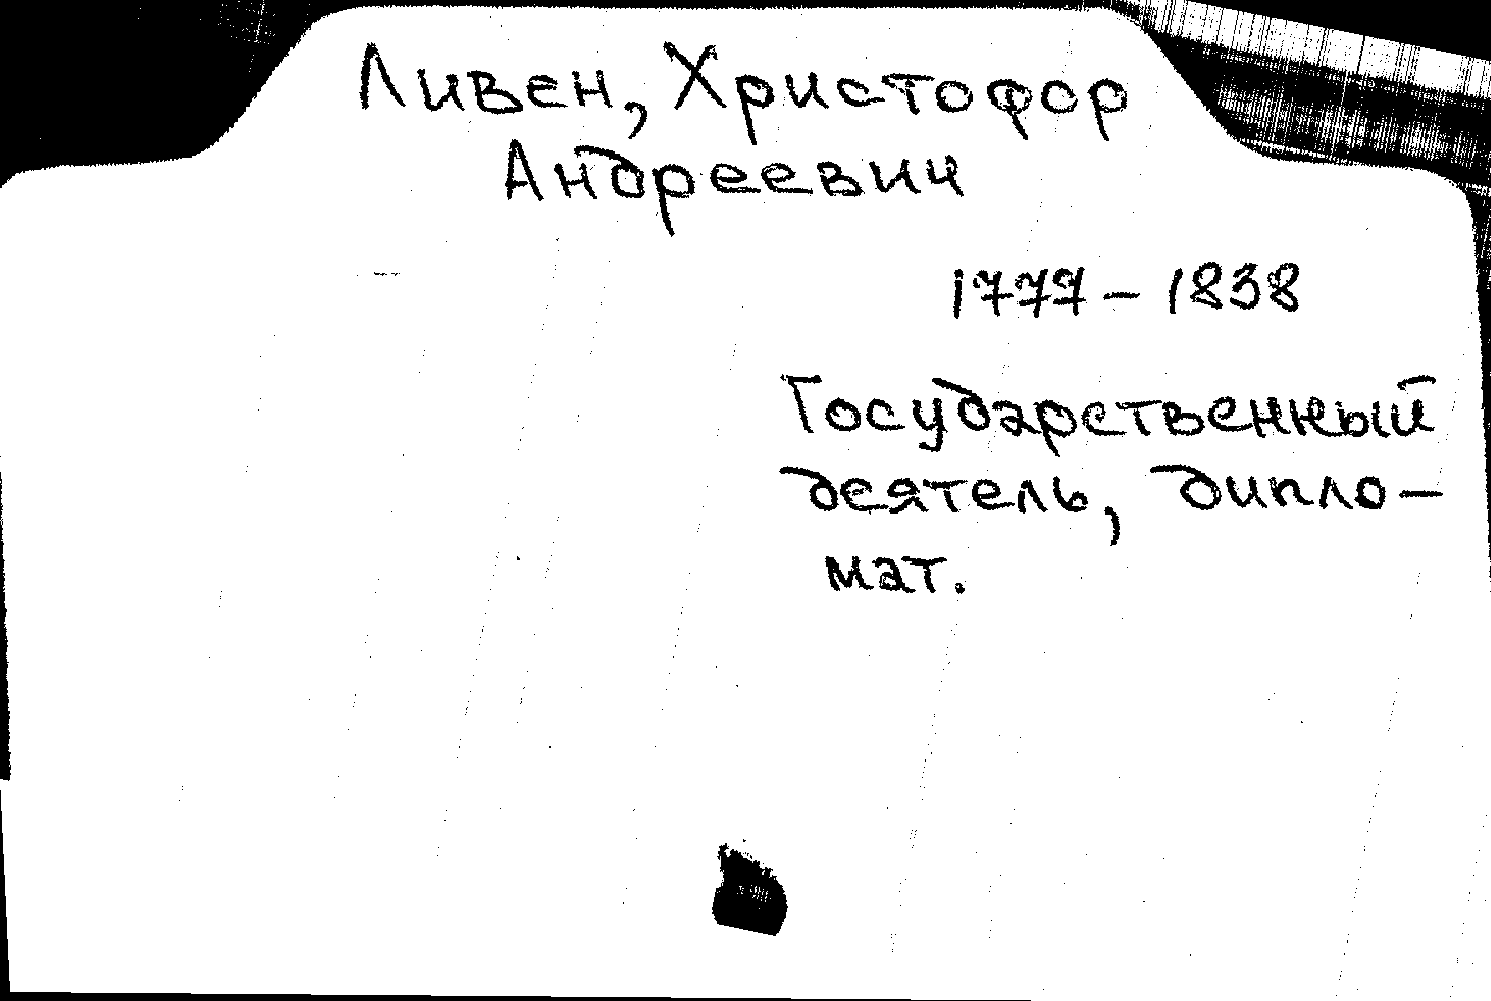 Ливен, Христофор
Андреевич
1777 – 1838
Государственный
деятель, дипло-
мат.